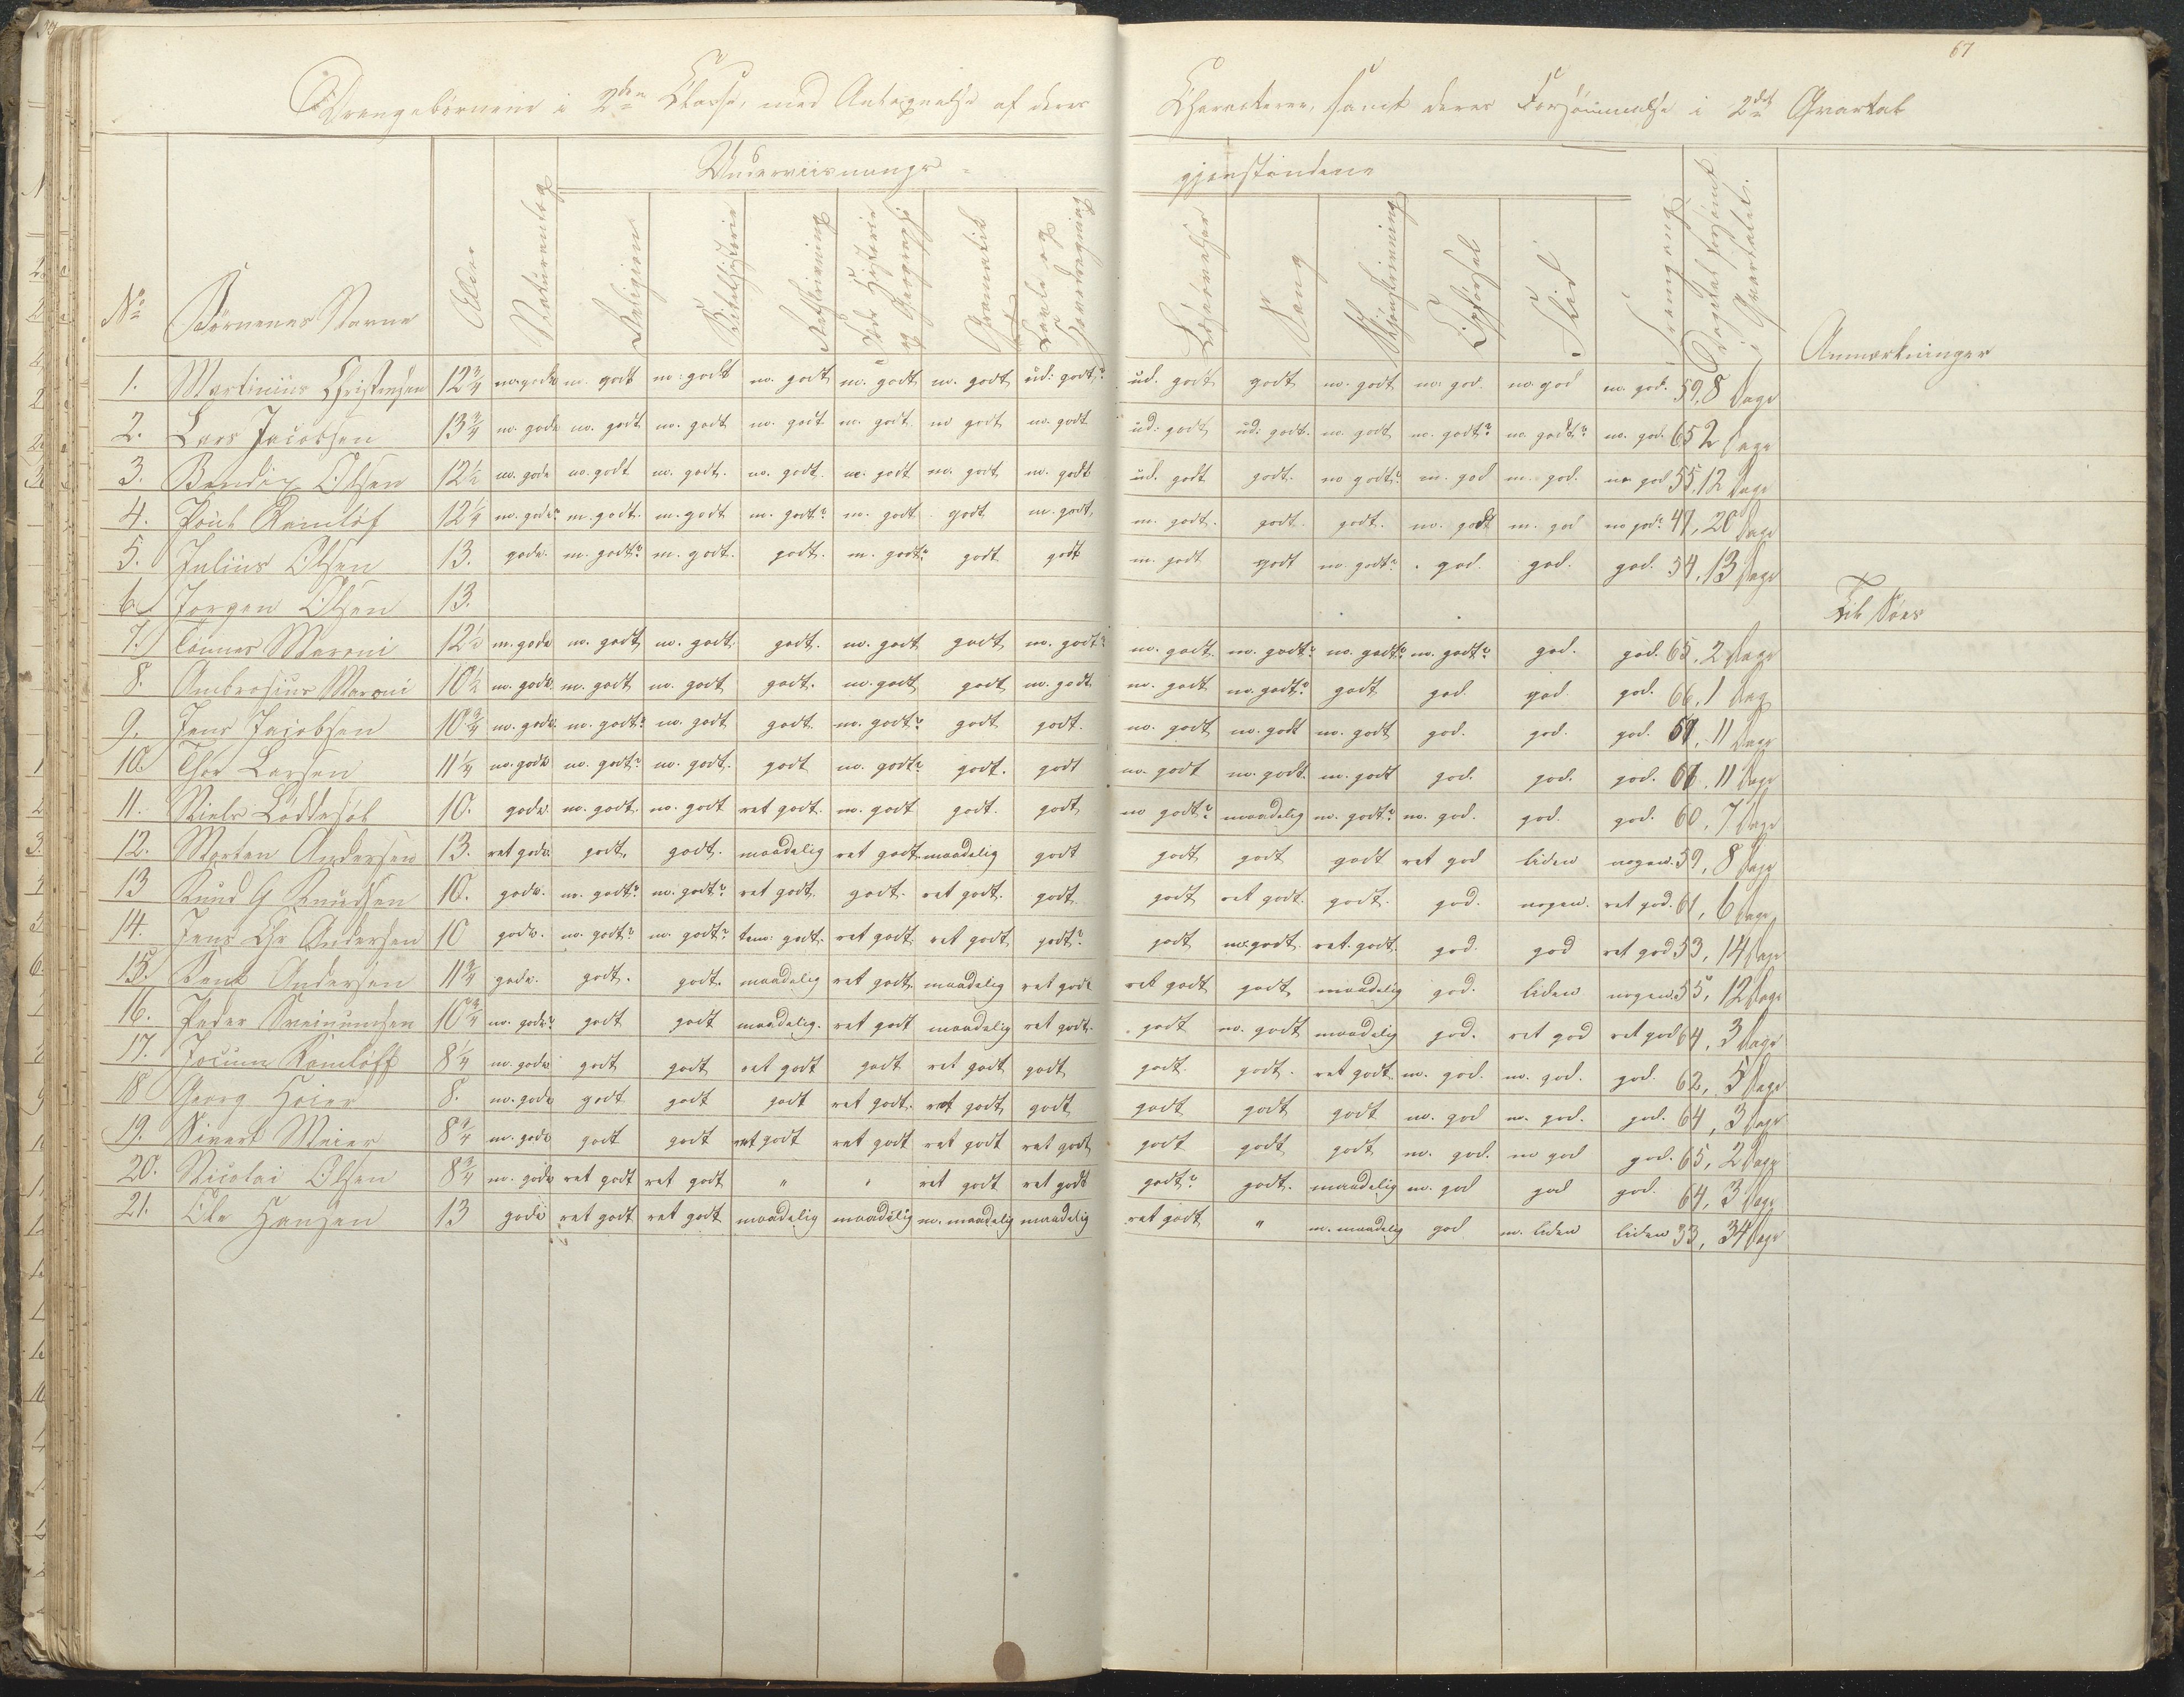 67
Drengebørnene i 2den Klasse, med Antegnelse af deres Charakterer, samt deres Forsømmelse i 2det Qvartal
Underviisnings- gjenstandene
No Børnenes Navne Alder Religion Bibelhistorie Retskrivning Fædr. Historie og Geographi Grammatik Tavle og Hovedregning Læsøvelser Sang Skjønskrivning Opførsel Flid Fremgang Dagtal forsømt i Qvartalet. Anmærkninger
1. Martinius Christensen 12 3/4 m. gode m. godt m: godt m. godt m. godt m. godt ud: godt? ud. godt godt m. godt m. god. m. god m. god. 59, 8 Dage
2. Lars Jacobsen 13 3/4 m. gode m. godt m. godt m. godt m. godt m godt m. godt ud: godt ud: godt. m. godt m. godt? m. godt? m. god. 65 2 Dage
3. Bendix Olsen 12 1/2 m. gode m. godt m. godt. m. godt. m: godt m. godt m. godt ud. godt godt. m godt? m. god m. god. m god 55, 12 Dage
4. Poul Ramløf 12 1/4 m. gode? m. godt. m. godt m. godt? m. godt godt m. godt, m. godt. godt. godt. m. godt m. god m god? 47, 20 Dage
5. Julius Olsen 13. gode. m. godt? m. godt. godt. m. godt? godt godt m. godt godt m. godt? god. god. god. 54, 13 Dage
6. Jørgen Olsen 13. Til Søes
7. Tønnes Maroni 12 1/2 m. gode m. godt m. godt. godt. m. godt godt m. godt? m. godt m. godt? m. godt? m. godt? god. god. 65, 2 Dage
8. Ambrosius Maroni 10 1/2 m. gode. m. godt m. godt godt. m. godt godt m. godt. m. godt m. godt? godt god. god. god. 66, 1 Dag
9. Jens Jacobsen 10 3/4 m. gode. m. godt? m. godt godt. m. godt? godt godt. m. godt m. godt m. godt god. god. god. 11 Dage
10. Thor Larsen 11 1/4 m. gode m. godt? m. godt. godt m. godt? godt. godt m. godt m. godt. m. godt god. god. god. 11 Dage
11. Niels Løddesøl 10. gode. m. godt. m. godt ret godt. m. godt godt. godt m godt? maadelig m. godt? m. god. god. god. 60, 7 Dage
12. Morten Andersen 13. ret gode godt, godt. maadelig ret godt. maadelig godt godt godt godt ret god liden nogen. 59, 8 Dage
13 Knud G Knudsen 10. gode. m. godt? m. godt? ret godt. godt. ret godt. godt godt ret godt. godt. god. nogen. ret god. 61, 6 Dage
14. Jens Chr Andersen 10 gode. m. godt? m. godt? tem: godt. ret godt. ret godt godt? godt m: godt ret. godt. god. god ret god. 53, 14 Dage
15. Bent Andersen 11 3/4 gode. godt. godt. maadelig ret godt. maadelig ret godt ret godt godt maadelig god. liden nogen. 55, 12 Dage
16. Peder Sveinumsen 10 3/4 m. gode? godt godt maadelig. ret godt maadelig ret godt. godt m. godt maadelig god. ret god ret god 64, 3 Dage
17. Jocum Ramløff 8 1/4 m. gode godt godt ret godt godt ret godt godt godt. godt. ret godt. m. god. m. god. god. 62, 5 Dage
18 Georg Heier 8. m. gode godt godt godt ret godt. ret godt godt godt godt godt m. god m. god. god. 64, 3 Dage
19. Sivert Meier 8 1/4 m. gode godt godt ret godt ret godt ret godt ret godt godt godt godt m. god. m god god. 65, 2 Dage
20. Nicolai Olsen 8 3/4 m. gode ret godt ret godt " " ret godt ret godt godt? godt. maadelig m. god god god. 64, 3 Dage
21. Ole Hansen 13 gode ret godt ret godt maadelig maadelig m. maadelig maadelig ret godt " m. maadelig god m. liden liden 33, 34 Dage